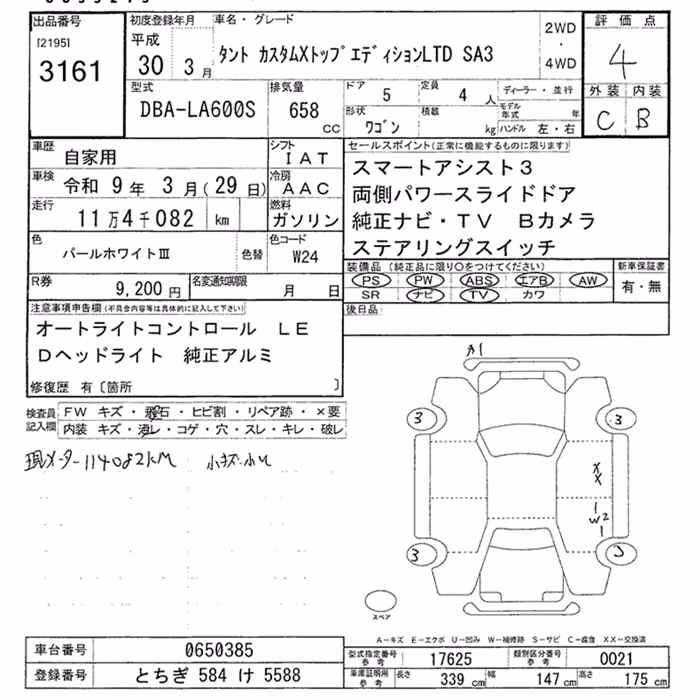 出品番号
[2195]
3161
初度登録年月
平成
30 3月
車名・グレード
タント カスタムXトップエディションLTD SA3
2WD
・
4WD
評価点
4
外装 内装
C B
型式
DBA-LA600S
排気量
658
CC
ドア 5
定員 4 人
ディーラー・並行
形状
ワゴン
積載
kg
モデル年式 年
ハンドル 左・右
車歴 自家用
シフト IAT
車検 令和 9年 3月(29日)
冷房 AAC
走行 11万4千082 km
燃料 ガソリン
色 パールホワイトⅢ 色替
色コード W24
R券 9,200円
名変通知期限 月 日
セールスポイント(正常に機能するものに限ります)
スマートアシスト3
両側パワースライドドア
純正ナビ・TV Bカメラ
ステアリングスイッチ
装備品(純正品に限り○をつけてください)
PS PW ABS エアB AW
SR ナビ TV カワ
新車保証書
有・無
後日品
注意事項申告欄(不具合内容等は具体的に記入して下さい)
オートライトコントロール LE
Dヘッドライト 純正アルミ
修復歴 有〔箇所 〕
検査員
記入欄
FW キズ・飛石・ヒビ割・リペア跡・×要
内装 キズ・汚レ・コゲ・穴・スレ・キレ・破レ
現メーター114082KM 小キズ小U
A1
3 3
XX
W2
3
スペア
A-キズ E-エクボ U-凹み W-補修跡 S-サビ C-腐食 XX-交換済
車台番号 0650385
登録番号 とちぎ 584 け 5588
型式指定番号 参考 17625
類別区分番号 参考 0021
車庫証明用 参考 長さ 339 cm 幅 147 cm 高さ 175 cm